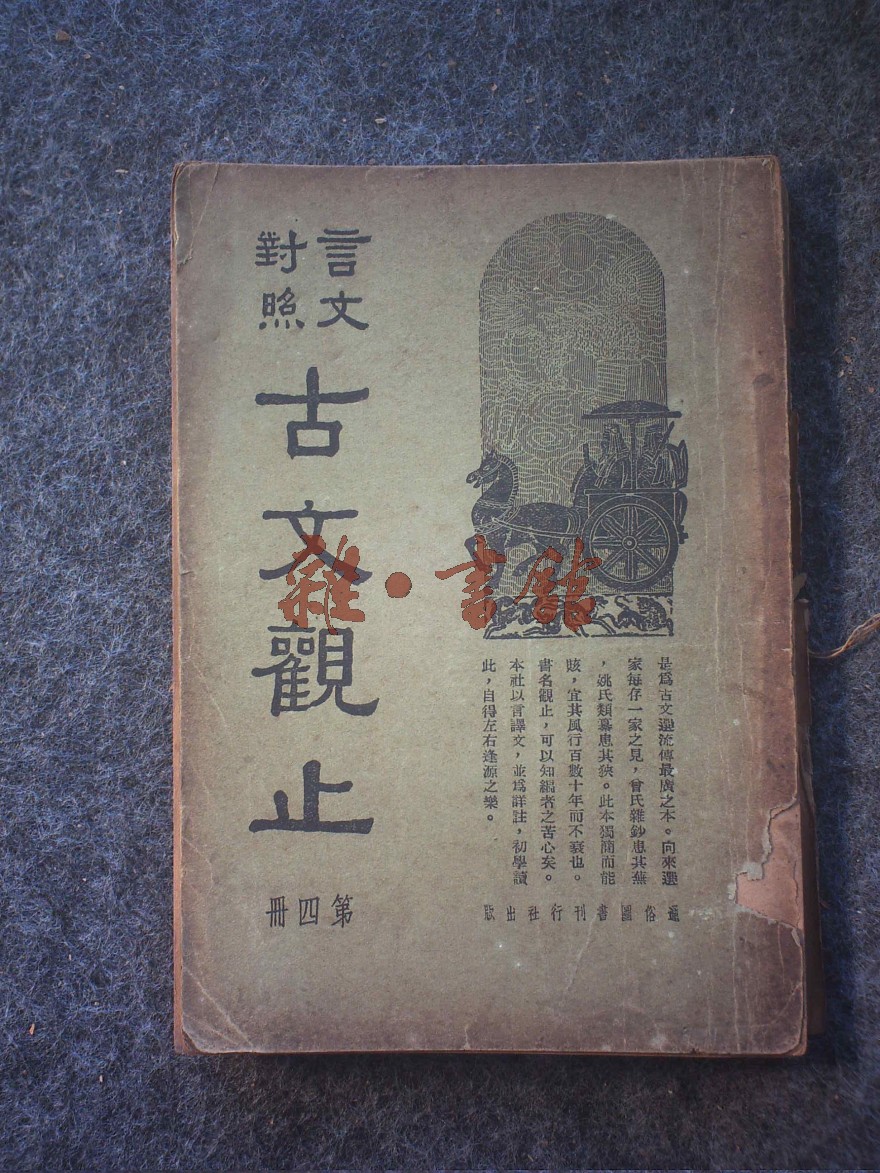 言文
對照
古文觀止
第四冊
是爲古文選流傳最廣之本。向來選
家每存一家之見,曾氏雜鈔患其蕪
,姚氏類纂患其狹。此本獨簡而能
賅,宜其風行百數十年而不衰也。
書名觀止,可以知編者之苦心矣。
本社以言譯文,並爲詳註,初學讀
此,自得左右逢源之樂。
通俗圖書刊行社出版
雜·書館